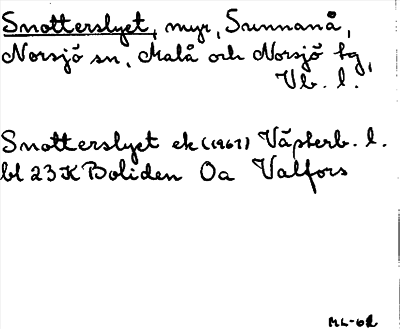 Snotterslyet, myr, Sunnanå,
Norsjö sn, Malå och Norsjö tg,
Vb. l.
Snotterslyet ek (1967) Västerb. l.
bl 23K Boliden Oa Valfors
ML-68